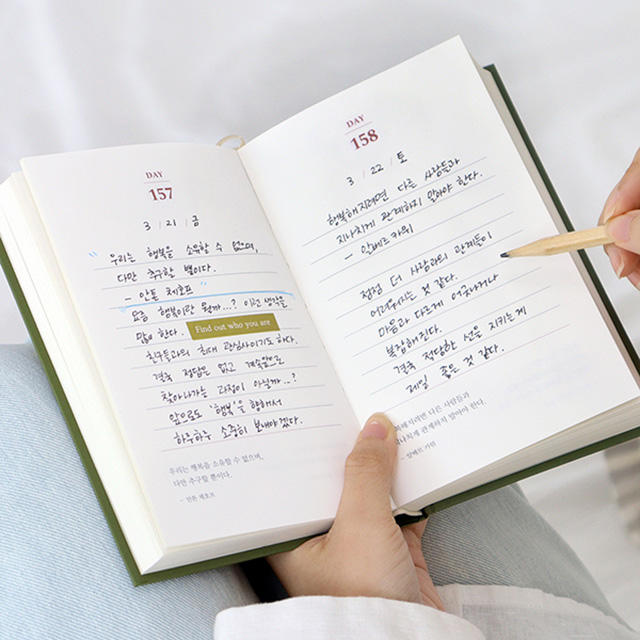 DAY
157
3 / 21 / 금
"우리는 행복을 소유할 수 없으며,
다만 추구할 뿐이다."
- 안톤 체호프
행복이란 뭘까...? 이런 생각을
많이 한다.
Find out who you are
친구들과의 최대 관심사이기도 하다.
결국 정답은 없고 계속
찾아나가는 과정이 아닐까..?
앞으로도 '행복'을 향해서
하루하루 소중히 보내야겠다.
우리는 행복을 소유할 수 없으며,
다만 추구할 뿐이다.
- 안톤 체호프
DAY
158
3 / 22 / 토
행복해지려면 다른 사람들과
지나치게 관계하지 말아야 한다.
- 알베르 카뮈
점점 더 사람과의 관계들이
어려워지는 것 같다.
마음과 다르게
복잡해진다.
결국 적당한 선을 지키는게
제일 좋은 것 같다.
해지려면 다른 사람들과
나치게 관계하지 말아야 한다.
알베르 카뮈